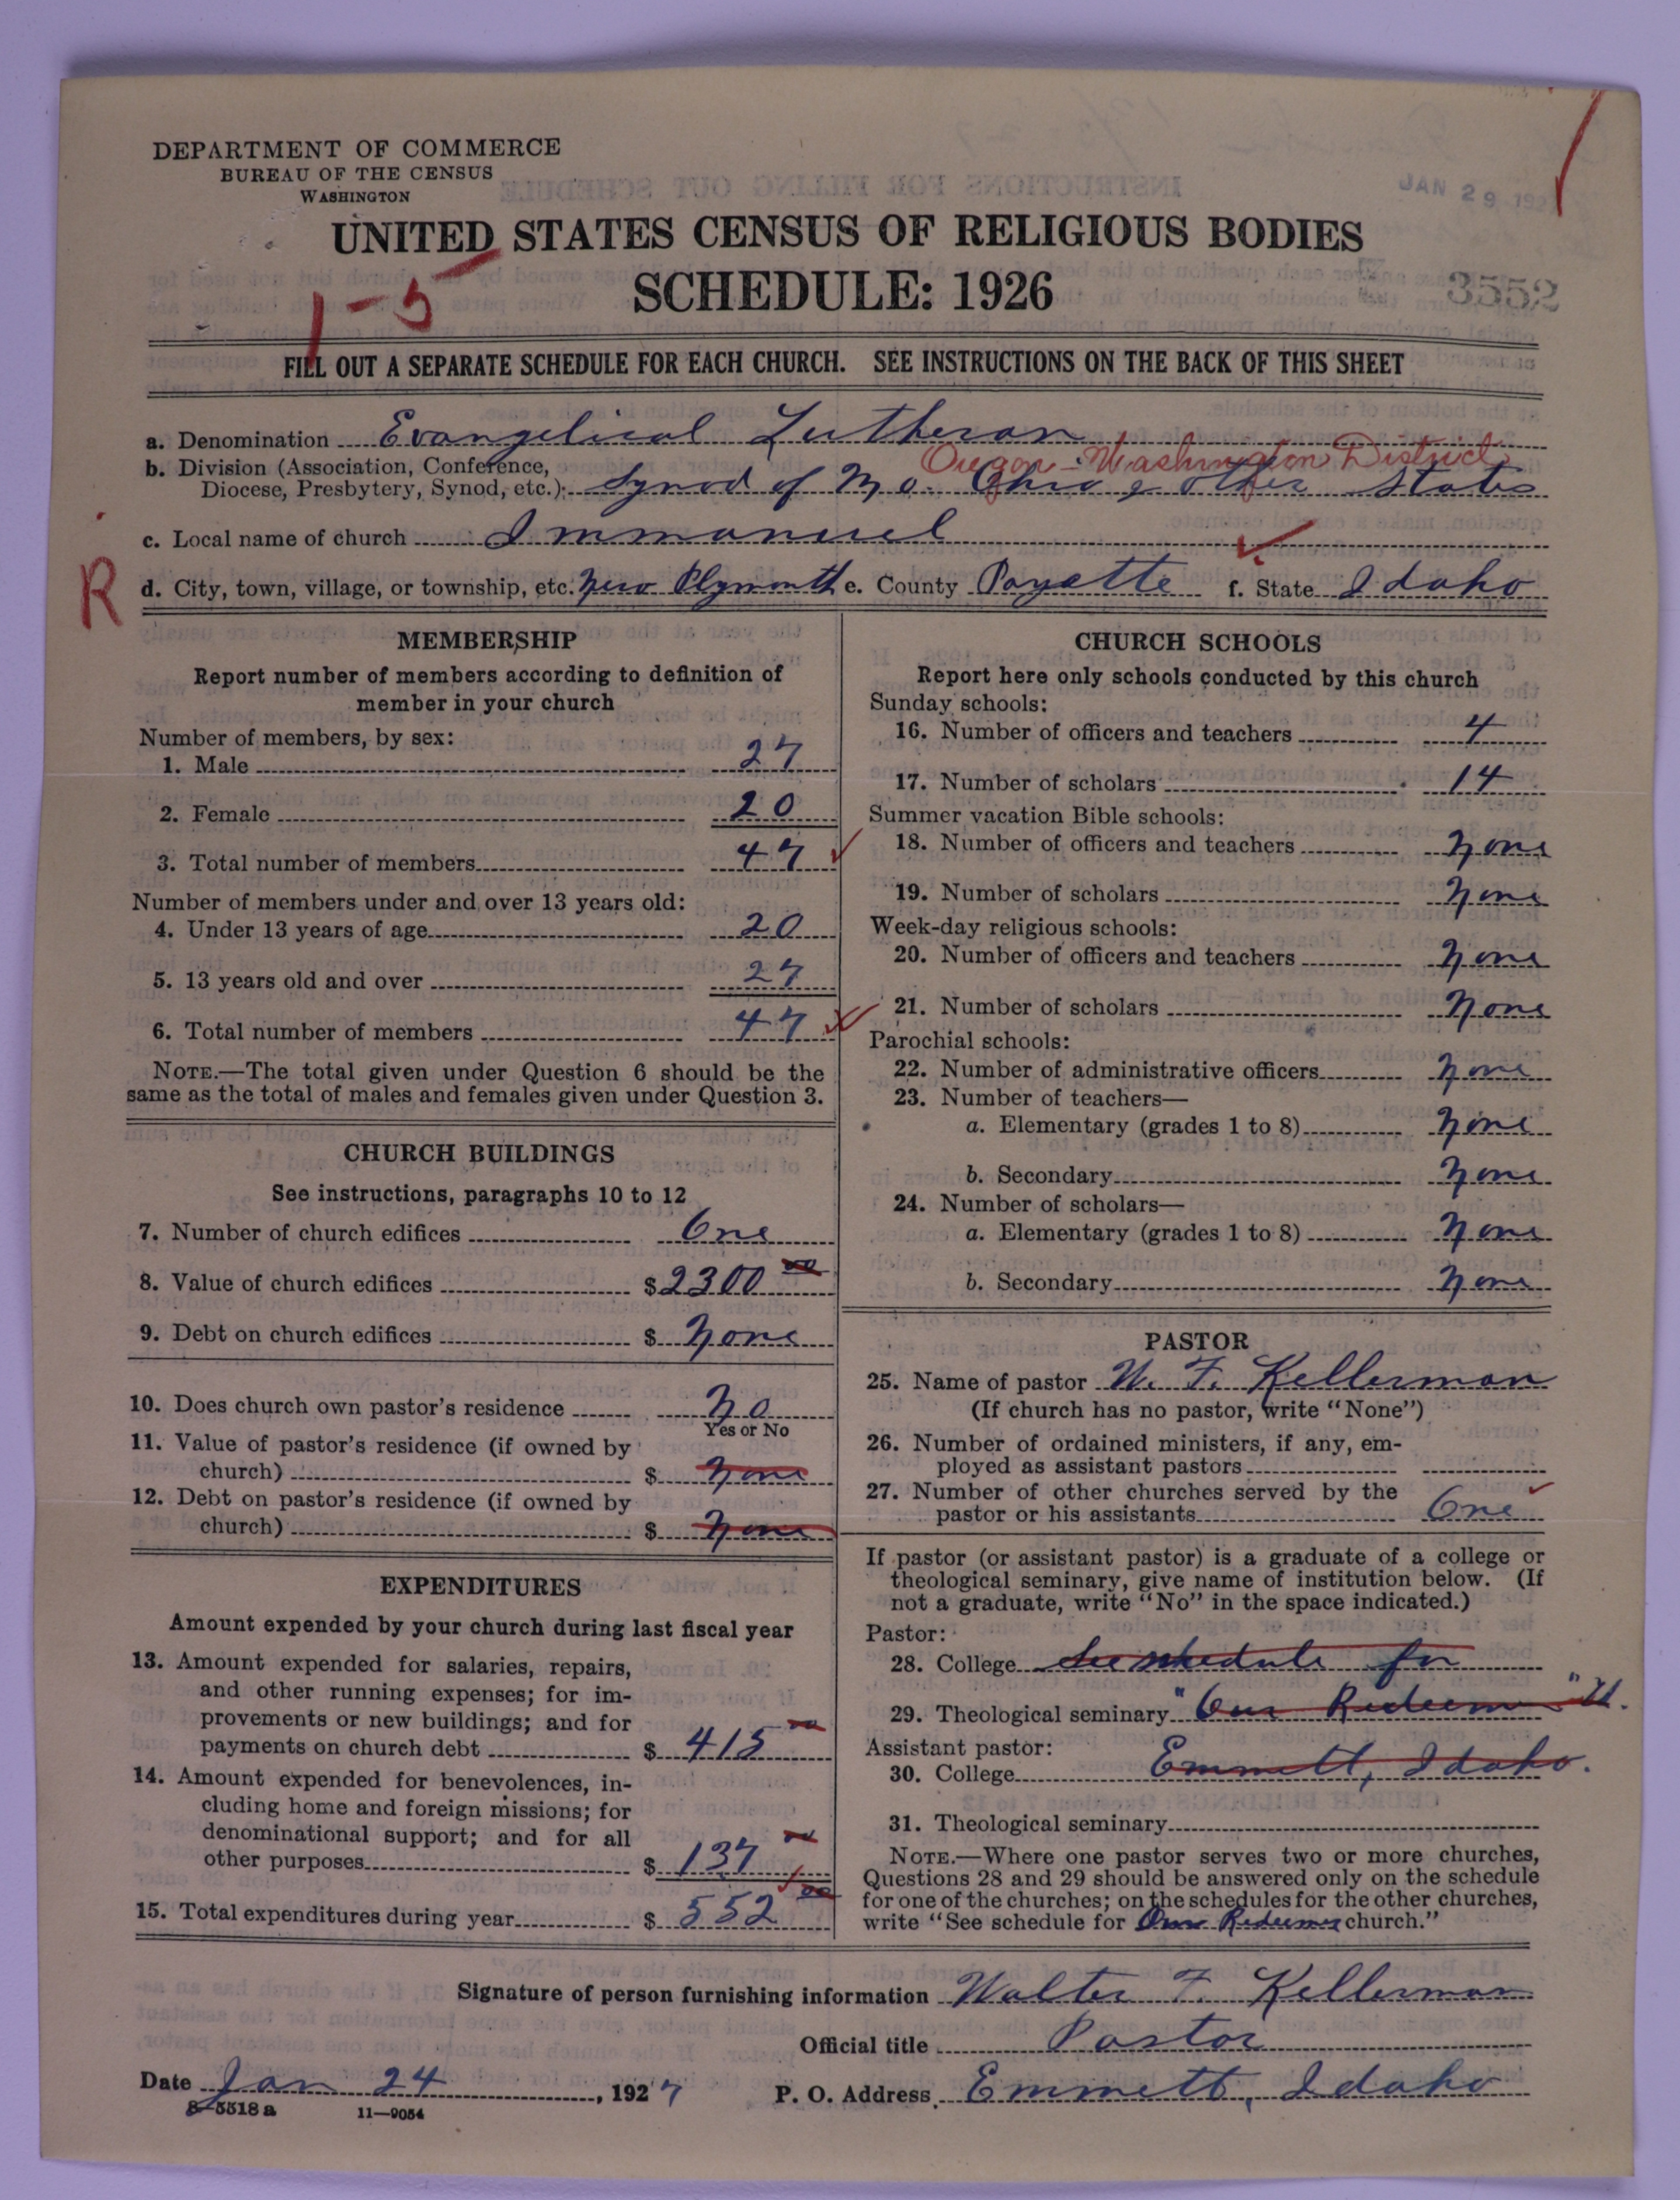 DEPARTMENT OF COMMERCE
BUREAU OF THE CENSUS
WASHINGTON
JAN 29 192
UNITED STATES CENSUS OF RELIGIOUS BODIES
SCHEDULE: 1926
3552
1-5
FILL OUT A SEPARATE SCHEDULE FOR EACH CHURCH. SEE INSTRUCTIONS ON THE BACK OF THIS SHEET
a. Denomination Evangelical Lutheran
Oregon-Washington District
b. Division (Association, Conference,
Diocese, Presbytery, Synod, etc.): Synod of Mo. Ohio & other States
c. Local name of church Immanuel
R
d. City, town, village, or township, etc. New Plymouth e. County Payette f. State Idaho
MEMBERSHIP
Report number of members according to definition of
member in your church
Number of members, by sex:
1. Male 27
2. Female 20
3. Total number of members 47
Number of members under and over 13 years old:
4. Under 13 years of age 20
5. 13 years old and over 27
6. Total number of members 47
NOTE.—The total given under Question 6 should be the
same as the total of males and females given under Question 3.
CHURCH BUILDINGS
See instructions, paragraphs 10 to 12
7. Number of church edifices One
8. Value of church edifices $ 2300 00
9. Debt on church edifices $ None
10. Does church own pastor's residence No
Yes or No
11. Value of pastor's residence (if owned by
church) $ None
12. Debt on pastor's residence (if owned by
church) $ None
EXPENDITURES
Amount expended by your church during last fiscal year
13. Amount expended for salaries, repairs,
and other running expenses; for im-
provements or new buildings; and for
payments on church debt $ 415 00
14. Amount expended for benevolences, in-
cluding home and foreign missions; for
denominational support; and for all
other purposes $ 137 00
15. Total expenditures during year $ 552 00
CHURCH SCHOOLS
Report here only schools conducted by this church
Sunday schools:
16. Number of officers and teachers 4
17. Number of scholars 14
Summer vacation Bible schools:
18. Number of officers and teachers None
19. Number of scholars None
Week-day religious schools:
20. Number of officers and teachers None
21. Number of scholars None
Parochial schools:
22. Number of administrative officers None
23. Number of teachers—
a. Elementary (grades 1 to 8) None
b. Secondary None
24. Number of scholars—
a. Elementary (grades 1 to 8) None
b. Secondary None
PASTOR
25. Name of pastor W. F. Kellerman
(If church has no pastor, write "None")
26. Number of ordained ministers, if any, em-
ployed as assistant pastors
27. Number of other churches served by the
pastor or his assistants One
If pastor (or assistant pastor) is a graduate of a college or
theological seminary, give name of institution below. (If
not a graduate, write "No" in the space indicated.)
Pastor:
28. College See schedule for
29. Theological seminary "Our Redeemer"
Assistant pastor:
30. College Emmett, Idaho.
31. Theological seminary
NOTE.—Where one pastor serves two or more churches,
Questions 28 and 29 should be answered only on the schedule
for one of the churches; on the schedules for the other churches,
write "See schedule for Our Redeemer church."
Signature of person furnishing information Walter F. Kellerman
Official title Pastor
Date Jan 24, 1927 P. O. Address Emmett, Idaho
8-5518 a 11—9054